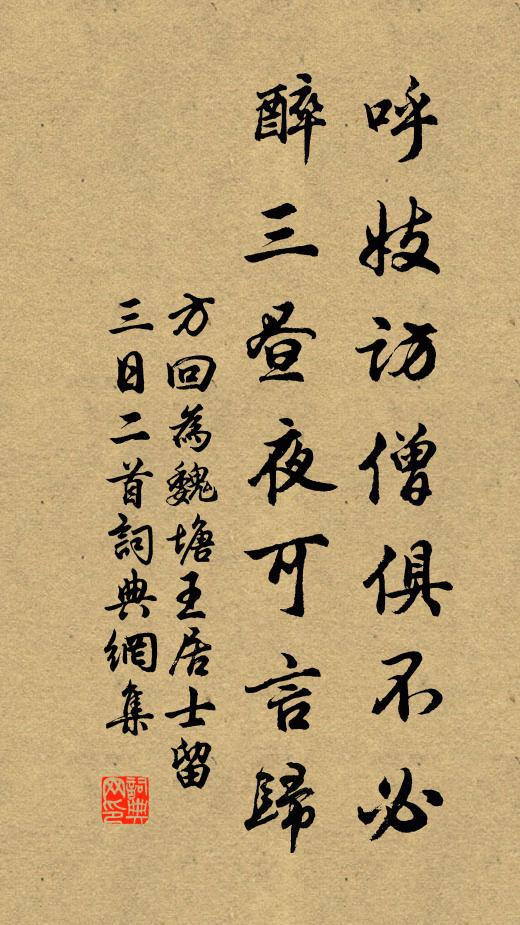 呼妓訪僧俱不必
醉三晝夜可言歸
方回為魏塘王居士留
三日二首詞典網集
詞典
网印